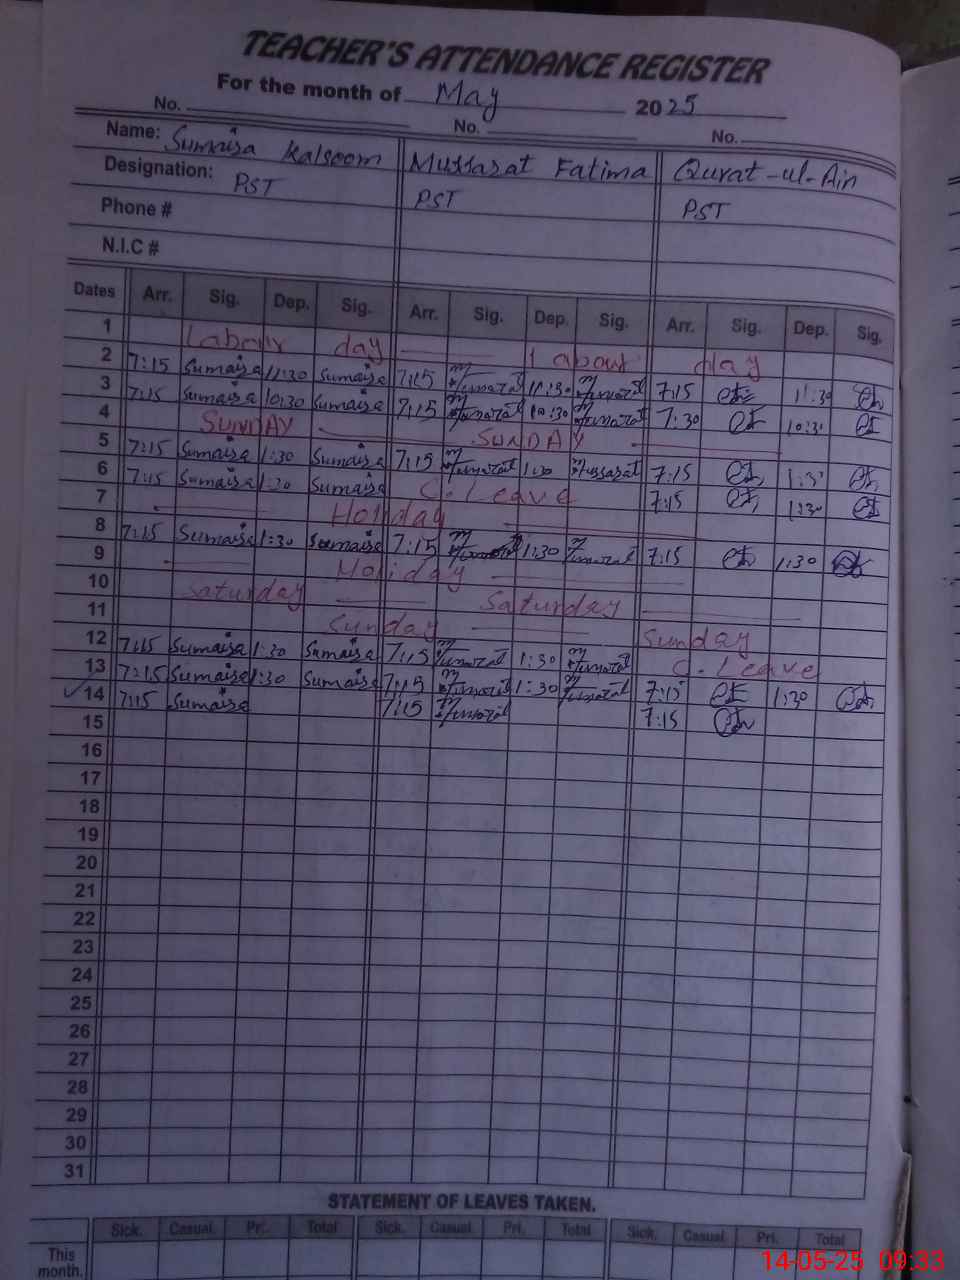 TEACHER'S ATTENDANCE REGISTER
For the month of May 2025
No. No. No.
Name: Sumaisa Kalsoom Mussarat Fatima Qurat-ul-Ain
Designation: PST PST PST
Phone #
N.I.C #
Dates Arr. Sig. Dep. Sig. Arr. Sig. Dep. Sig. Arr. Sig. Dep. Sig.
1 Labour day labour day
2 7:15 Sumaisa 11:30 Sumaisa 7:15 11:30 7:15 11:30
3 7:15 Sumaisa 10:30 Sumaisa 7:15 10:30 7:30 10:30
4 SUNDAY SUNDAY
5 7:15 Sumaisa 1:30 Sumaisa 7:15 1:30 Mussarat 7:15 1:30
6 7:15 Sumaisa 1:30 Sumaisa C. Leave 7:15 1:30
7 Holiday
8 7:15 Sumaisa 1:30 Sumaisa 7:15 1:30 7:15 1:30
9 Holiday
10 Saturday Saturday
11 Sunday Sunday
12 7:15 Sumaisa 1:30 Sumaisa 7:15 1:30 C. Leave
13 7:15 Sumaisa 1:30 Sumaisa 7:15 1:30 7:15 1:30
14 7:15 Sumaisa 7:15 7:15
15
16
17
18
19
20
21
22
23
24
25
26
27
28
29
30
31
STATEMENT OF LEAVES TAKEN.
Sick. Casual. Pri. Total Sick. Casual. Pri. Total Sick. Casual Pri. Total
This month.
14-05-25 09:33